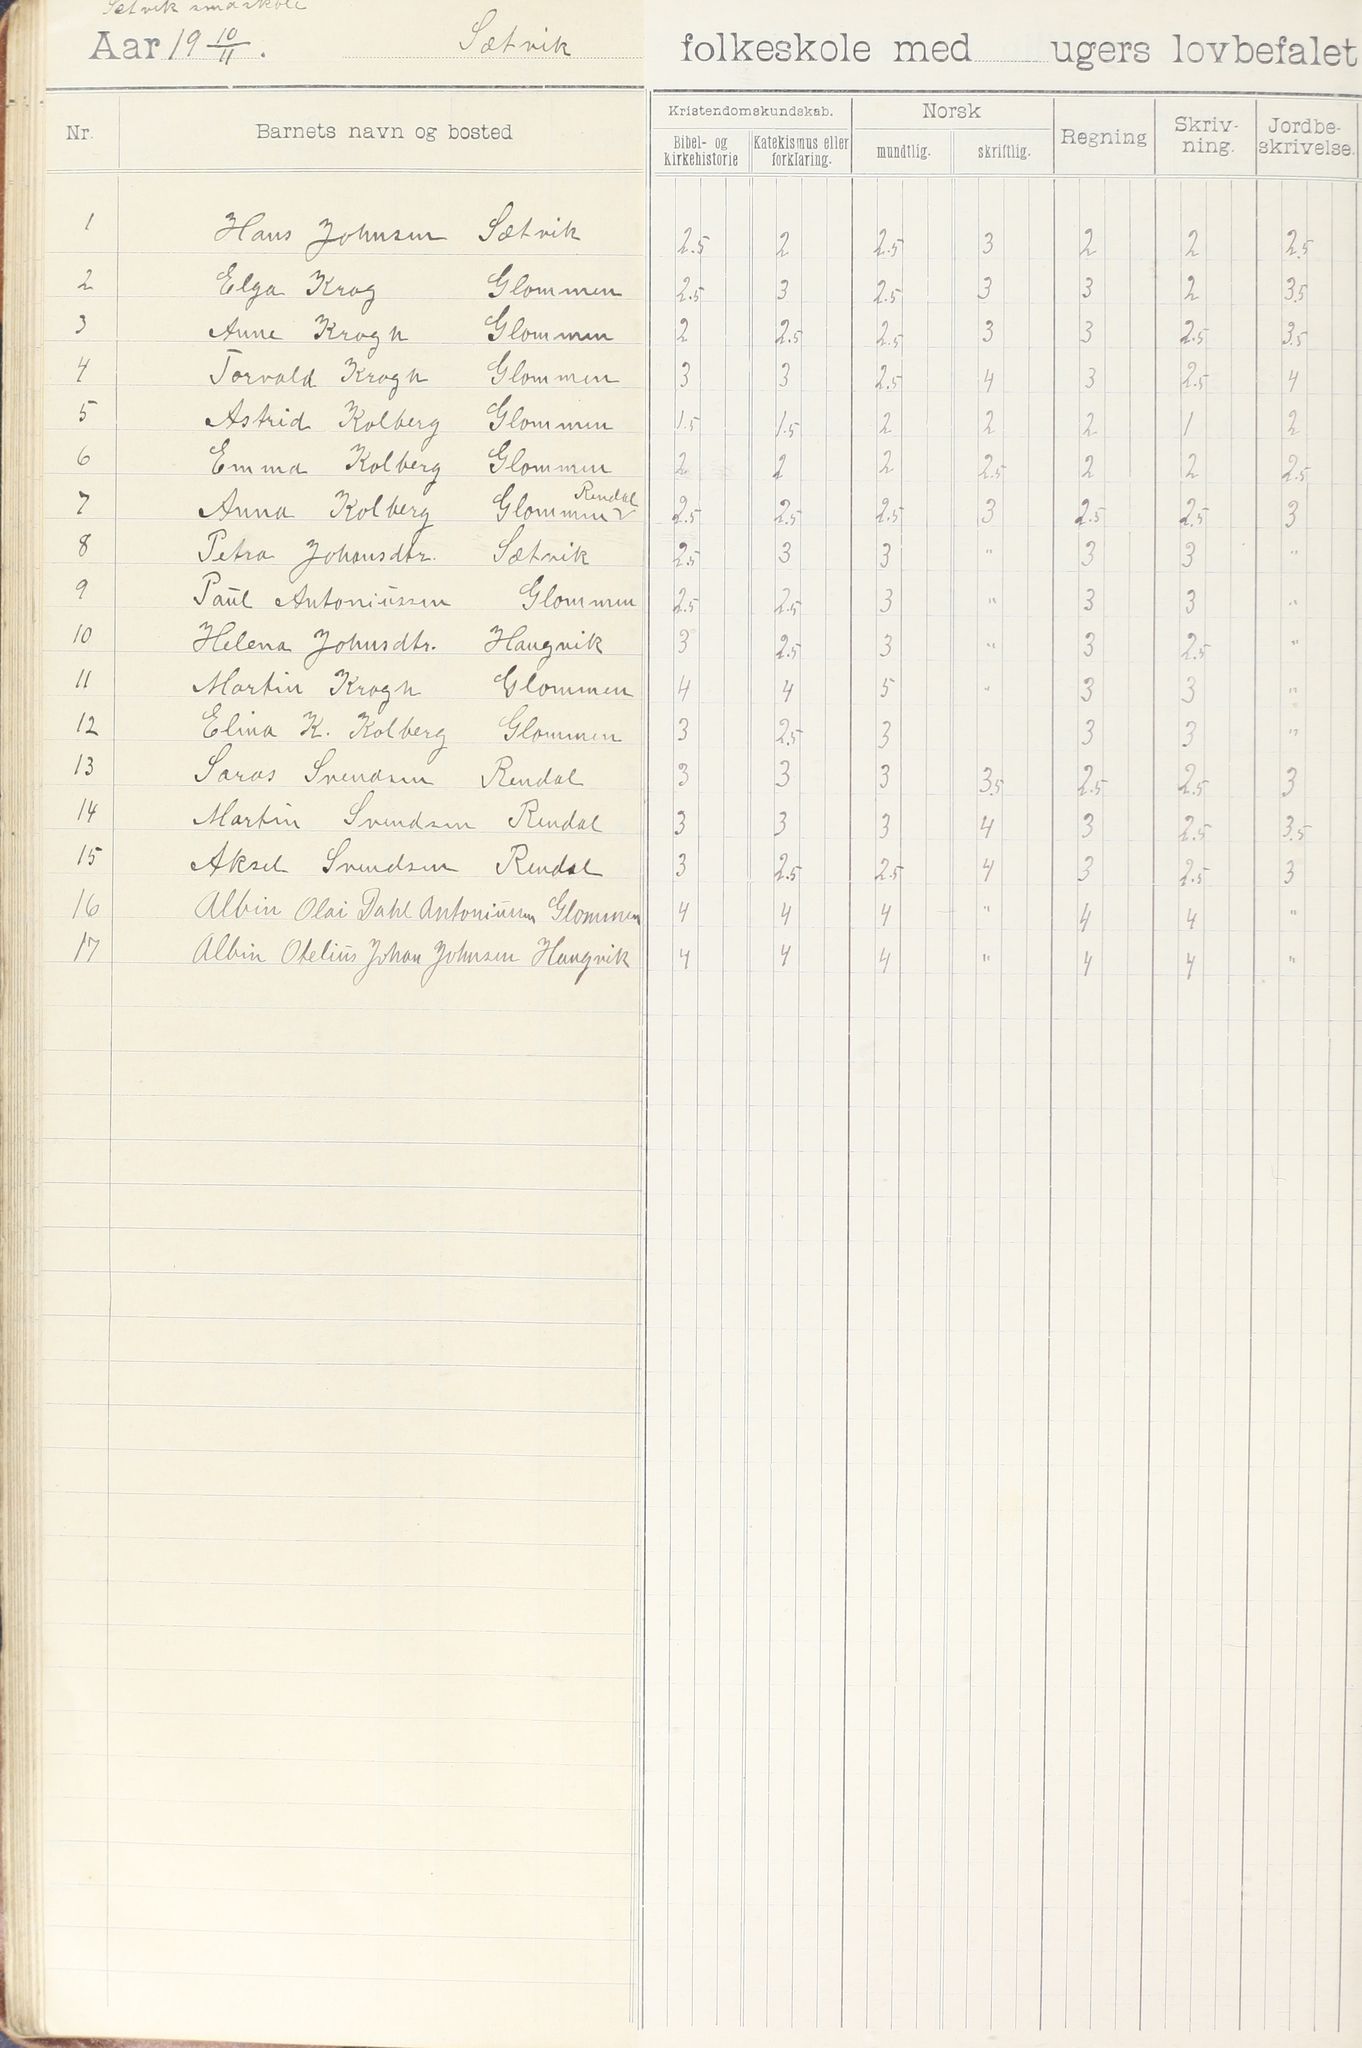 Sætvik småskole
Aar 19 10/11. Sætvik folkeskole med ugers lovbefalet
Nr. Barnets navn og bosted Kristendomskundskab. Norsk Regning Skriv-ning. Jordbe-skrivelse.
Bibel- og kirkehistorie Katekismus eller forklaring. mundtlig. skriftlig.
1 Hans Johnsen Sætvik 2.5 2 2.5 3 2 2 2.5
2 Elga Krog Glommen 2.5 3 2.5 3 3 2 3.5
3 Anne Krogh Glommen 2 2.5 2.5 3 3 2.5 3.5
4 Torvald Krogh Glommen 3 3 2.5 4 3 2.5 4
5 Astrid Kolberg Glommen 1.5 1.5 2 2 2 1 2
6 Emma Kolberg Glommen 2 2 2 2.5 2 2 2.5
Rendal
7 Anna Kolberg Glommen 2.5 2.5 2.5 3 2.5 2.5 3
8 Petra Johansdtr. Sætvik 2.5 3 3 " 3 3 "
9 Paul Antoniussen Glommen 2.5 2.5 3 " 3 3 "
10 Helena Johnsdtr. Haugvik 3 2.5 3 " 3 2.5 "
11 Martin Krogh Glommen 4 4 5 " 3 3 "
12 Elina K. Kolberg Glommen 3 2.5 3 3 3 "
13 Saras Svendsen Rendal 3 3 3 3.5 2.5 2.5 3
14 Martin Svendsen Rendal 3 3 3 4 3 2.5 3.5
15 Aksel Svendsen Rendal 3 2.5 2.5 4 3 2.5 3
16 Albin Olai Dahl Antoniussen Glommen 4 4 4 " 4 4 "
17 Albin Otelius Johan Johnsen Haugvik 4 4 4 " 4 4 "